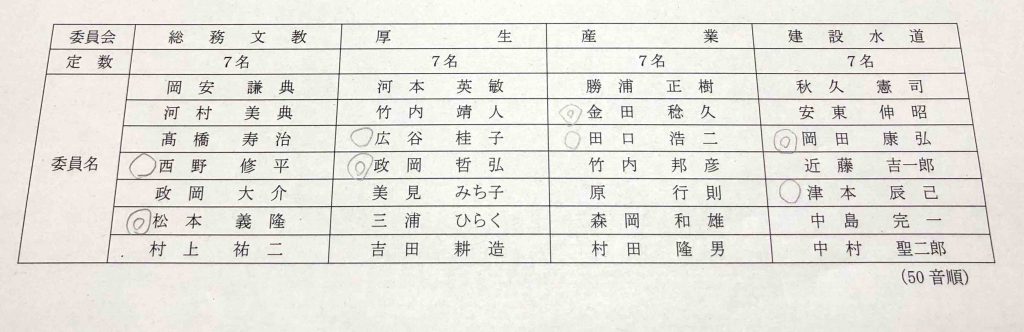 委員会 総務文教 厚生 産業 建設水道
定数 7名 7名 7名 7名
委員名 岡安謙典 河本英敏 勝浦正樹 秋久憲司
河村美典 竹内靖人 ◎金田稔久 安東伸昭
髙橋寿治 ○広谷桂子 ○田口浩二 ◎岡田康弘
○西野修平 ◎政岡哲弘 竹内邦彦 近藤吉一郎
政岡大介 美見みち子 原行則 ○津本辰己
◎松本義隆 三浦ひらく 森岡和雄 中島完一
村上祐二 吉田耕造 村田隆男 中村聖二郎
(50音順)